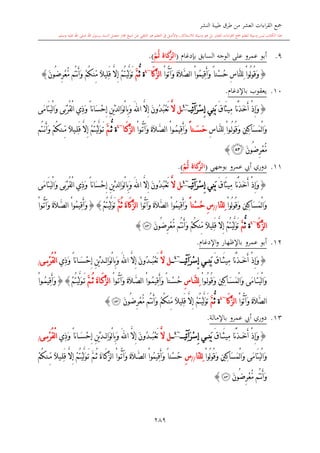 جمع القراءات العشر من طرق طيبة النشر
٩. أبو عمرو على الوجه السابق بإدغام (ٱلزَّكَاة ثُّمَّ).
﴿ وَقُولُوا۟ لِلنَّاسِ حُسْنًا وَأَقِيمُوا۟ ٱلصَّلَاةَ وَءَاتُوا۟ ٱلزَّكَاة ثُّمَّ تَوَلَّيْتُمْ إِلَّا قَلِيلًا مِّنكُمْ وَأَنتُم مُّعْرِضُونَ ﴾
١٠. يعقوب بالإدغام.
﴿ وَإِذْ أَخَذْنَا مِيثَاقَ بَنِىٓ إِسْرَٰٓءِيلَ لَا تَعْبُدُونَ إِلَّا ٱللَّهَ وَبِٱلْوَٰلِدَيْنِ إِحْسَانًا وَذِى ٱلْقُرْبَىٰ وَٱلْيَتَٰمَىٰ
وَٱلْمَسَٰكِينِ وَقُولُوا۟ لِلنَّاسِ حَسَنًا وَأَقِيمُوا۟ ٱلصَّلَاةَ وَءَاتُوا۟ ٱلزَّكَاة ثُّمَّ تَوَلَّيْتُمْ إِلَّا قَلِيلًا مِّنكُمْ وَأَنتُم
مُّعْرِضُونَ ﴿٨٣﴾ ﴾
١١. دوري أبي عمرو بوجهي (ٱلزَّكَاة ثُّمَّ).
﴿ وَإِذْ أَخَذْنَا مِيثَاقَ بَنِىٓ إِسْرَٰٓءِيلَ لَا تَعْبُدُونَ إِلَّا ٱللَّهَ وَبِٱلْوَٰلِدَيْنِ إِحْسَانًا وَذِى ٱلْقُرْبَىٰ وَٱلْيَتَٰمَىٰ
وَٱلْمَسَٰكِينِ وَقُولُوا۟ لِلنَّاسِ حُسْنًا وَأَقِيمُوا۟ ٱلصَّلَاةَ وَءَاتُوا۟ ٱلزَّكَاةَ ثُمَّ تَوَلَّيْتُمْ ﴾ ﴿ وَأَقِيمُوا۟ ٱلصَّلَاةَ وَءَاتُوا۟
ٱلزَّكَاة ثُّمَّ تَوَلَّيْتُمْ إِلَّا قَلِيلًا مِّنكُمْ وَأَنتُم مُّعْرِضُونَ ﴾
١٢. أبو عمرو بالإظهار والإدغام.
﴿ وَإِذْ أَخَذْنَا مِيثَاقَ بَنِىٓ إِسْرَٰٓءِيلَ لَا تَعْبُدُونَ إِلَّا ٱللَّهَ وَبِٱلْوَٰلِدَيْنِ إِحْسَانًا وَذِى ٱلْقُرْبَىٰ
وَٱلْيَتَٰمَىٰ وَٱلْمَسَٰكِينِ وَقُولُوا۟ لِلنَّاسِ حُسْنًا وَأَقِيمُوا۟ ٱلصَّلَاةَ وَءَاتُوا۟ ٱلزَّكَاةَ ثُمَّ تَوَلَّيْتُمْ ﴾ ﴿ وَأَقِيمُوا۟
ٱلصَّلَاةَ وَءَاتُوا۟ ٱلزَّكَاة ثُّمَّ تَوَلَّيْتُمْ إِلَّا قَلِيلًا مِّنكُمْ وَأَنتُم مُّعْرِضُونَ ﴾
١٣. دوري أبي عمرو بالإمالة.
﴿ وَإِذْ أَخَذْنَا مِيثَاقَ بَنِىٓ إِسْرَٰٓءِيلَ لَا تَعْبُدُونَ إِلَّا ٱللَّهَ وَبِٱلْوَٰلِدَيْنِ إِحْسَانًا وَذِى ٱلْقُرْبَىٰ
وَٱلْيَتَٰمَىٰ وَٱلْمَسَٰكِينِ وَقُولُوا۟ لِلنَّاسِ حُسْنًا وَأَقِيمُوا۟ ٱلصَّلَاةَ وَءَاتُوا۟ ٱلزَّكَاةَ ثُمَّ تَوَلَّيْتُمْ إِلَّا قَلِيلًا مِّنكُمْ
وَأَنتُم مُّعْرِضُونَ ﴾
٢٨٩